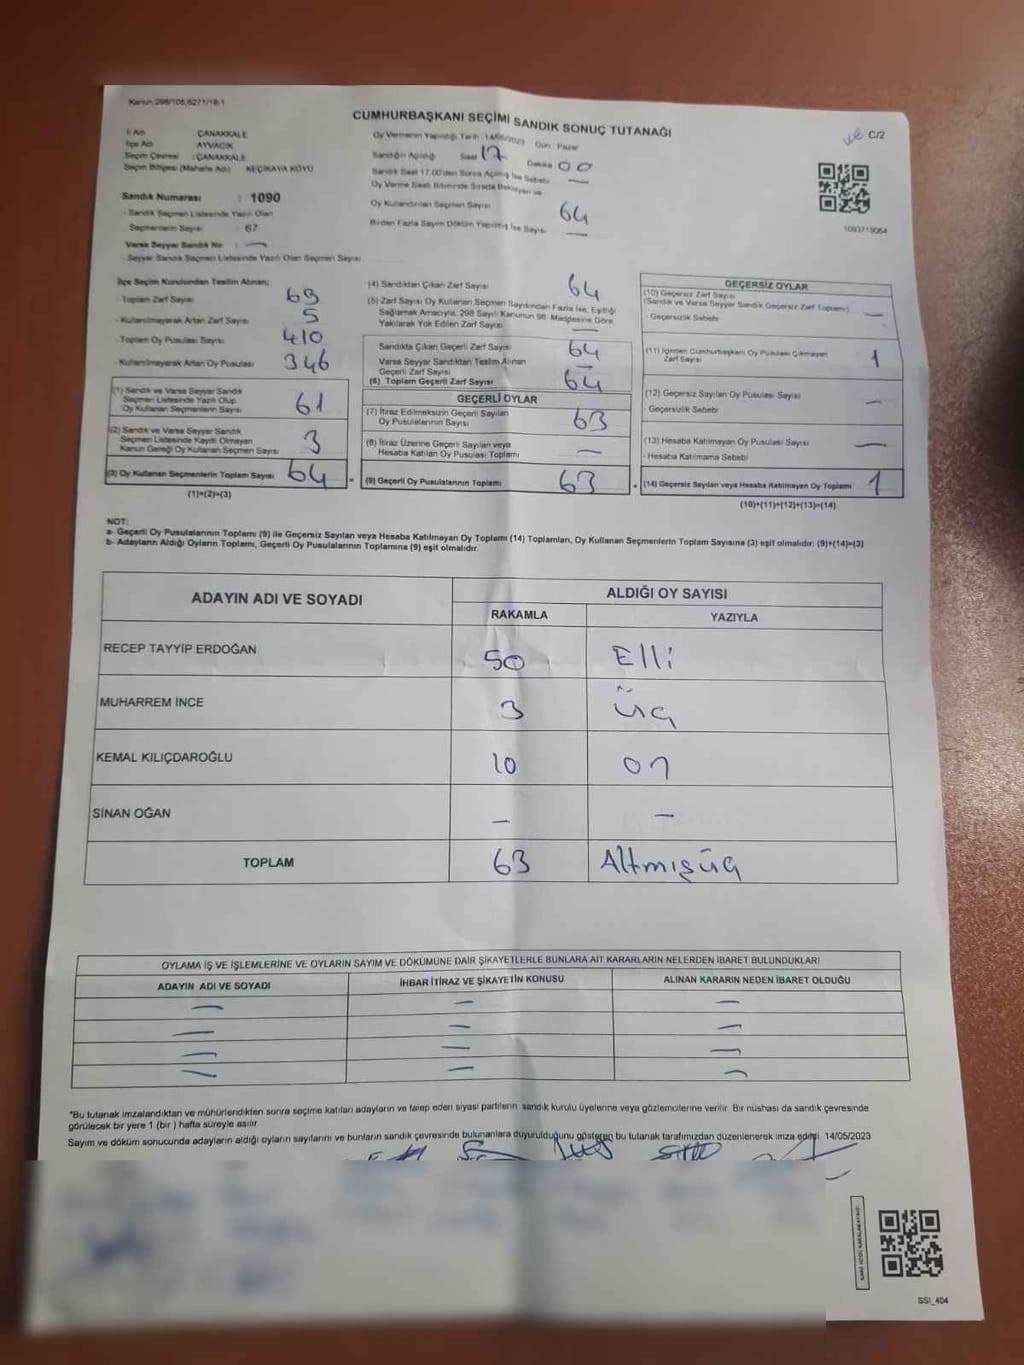 Kanun:298/105,6271/18-1
CUMHURBAŞKANI SEÇİMİ SANDIK SONUÇ TUTANAĞI
C/2
İl Adı : ÇANAKKALE
İlçe Adı : AYVACIK
Seçim Çevresi : ÇANAKKALE
Seçim Bölgesi (Mahalle Adı) : KEÇİKAYA KÖYÜ
Sandık Numarası : 1090
- Sandık Seçmen Listesinde Yazılı Olan
Seçmenlerin Sayısı : 67
Varsa Seyyar Sandık No : —
- Seyyar Sandık Seçmen Listesinde Yazılı Olan Seçmen Sayısı
Oy Vermenin Yapıldığı Tarih :14/05/2023 Gün : Pazar
Sandığın Açıldığı Saat 17 Dakika 00
Sandık Saat 17.00'den Sonra Açılmış İse Sebebi —
Oy Verme Saati Bitiminde Sırada Bekleyen ve
Oy Kullandırılan Seçmen Sayısı 64
Birden Fazla Sayım Döküm Yapılmış İse Sayısı —
1093719064
İlçe Seçim Kurulundan Teslim Alınan;
- Toplam Zarf Sayısı 69
- Kullanılmayarak Artan Zarf Sayısı 5
- Toplam Oy Pusulası Sayısı 410
- Kullanılmayarak Artan Oy Pusulası 346
(1) Sandık ve Varsa Seyyar Sandık
Seçmen Listesinde Yazılı Olup
Oy Kullanan Seçmenlerin Sayısı 61
(2) Sandık ve Varsa Seyyar Sandık
Seçmen Listesinde Kayıtlı Olmayan
Kanun Gereği Oy Kullanan Seçmen Sayısı 3
(3) Oy Kullanan Seçmenlerin Toplam Sayısı 64
(1)+(2)=(3)
(4) Sandıktan Çıkan Zarf Sayısı 64
(5) Zarf Sayısı Oy Kullanan Seçmen Sayısından Fazla İse, Eşitliği
Sağlamak Amacıyla, 298 Sayılı Kanunun 98. Maddesine Göre
Yakılarak Yok Edilen Zarf Sayısı —
Sandıkta Çıkan Geçerli Zarf Sayısı 64
Varsa Seyyar Sandıktan Teslim Alınan
Geçerli Zarf Sayısı —
(6) Toplam Geçerli Zarf Sayısı 64
GEÇERLİ OYLAR
(7) İtiraz Edilmeksizin Geçerli Sayılan
Oy Pusulalarının Sayısı 63
(8) İtiraz Üzerine Geçerli Sayılan veya
Hesaba Katılan Oy Pusulası Toplamı —
= (9) Geçerli Oy Pusulalarının Toplamı 63
GEÇERSİZ OYLAR
(10) Geçersiz Zarf Sayısı
(Sandık ve Varsa Seyyar Sandık Geçersiz Zarf Toplamı) —
- Geçersizlik Sebebi
(11) İçinden Cumhurbaşkanı Oy Pusulası Çıkmayan
Zarf Sayısı 1
(12) Geçersiz Sayılan Oy Pusulası Sayısı —
- Geçersizlik Sebebi
(13) Hesaba Katılmayan Oy Pusulası Sayısı —
- Hesaba Katılmama Sebebi
+ (14) Geçersiz Sayılan veya Hesaba Katılmayan Oy Toplamı 1
(10)+(11)+(12)+(13)=(14)
NOT:
a- Geçerli Oy Pusulalarının Toplamı (9) ile Geçersiz Sayılan veya Hesaba Katılmayan Oy Toplamı (14) Toplamları, Oy Kullanan Seçmenlerin Toplam Sayısına (3) eşit olmalıdır. (9)+(14)=(3)
b- Adayların Aldığı Oyların Toplamı, Geçerli Oy Pusulalarının Toplamına (9) eşit olmalıdır.
ADAYIN ADI VE SOYADI ALDIĞI OY SAYISI
RAKAMLA YAZIYLA
RECEP TAYYİP ERDOĞAN 50 Elli
MUHARREM İNCE 3 üç
KEMAL KILIÇDAROĞLU 10 on
SİNAN OĞAN — —
TOPLAM 63 Altmışüç
OYLAMA İŞ VE İŞLEMLERİNE VE OYLARIN SAYIM VE DÖKÜMÜNE DAİR ŞİKAYETLERLE BUNLARA AİT KARARLARIN NELERDEN İBARET BULUNDUKLARI
ADAYIN ADI VE SOYADI İHBAR İTİRAZ VE ŞİKAYETİN KONUSU ALINAN KARARIN NEDEN İBARET OLDUĞU
— — —
— — —
— — —
— — —
*Bu tutanak imzalandıktan ve mühürlendikten sonra seçime katılan adayların ve talep eden siyasi partilerin sandık kurulu üyelerine veya gözlemcilerine verilir. Bir nüshası da sandık çevresinde
görülecek bir yere 1 (bir ) hafta süreyle asılır.
Sayım ve döküm sonucunda adayların aldığı oyların sayılarını ve bunların sandık çevresinde bulunanlara duyurulduğunu gösteren bu tutanak tarafımızdan düzenlenerek imza edildi. 14/05/2023
SSI_404